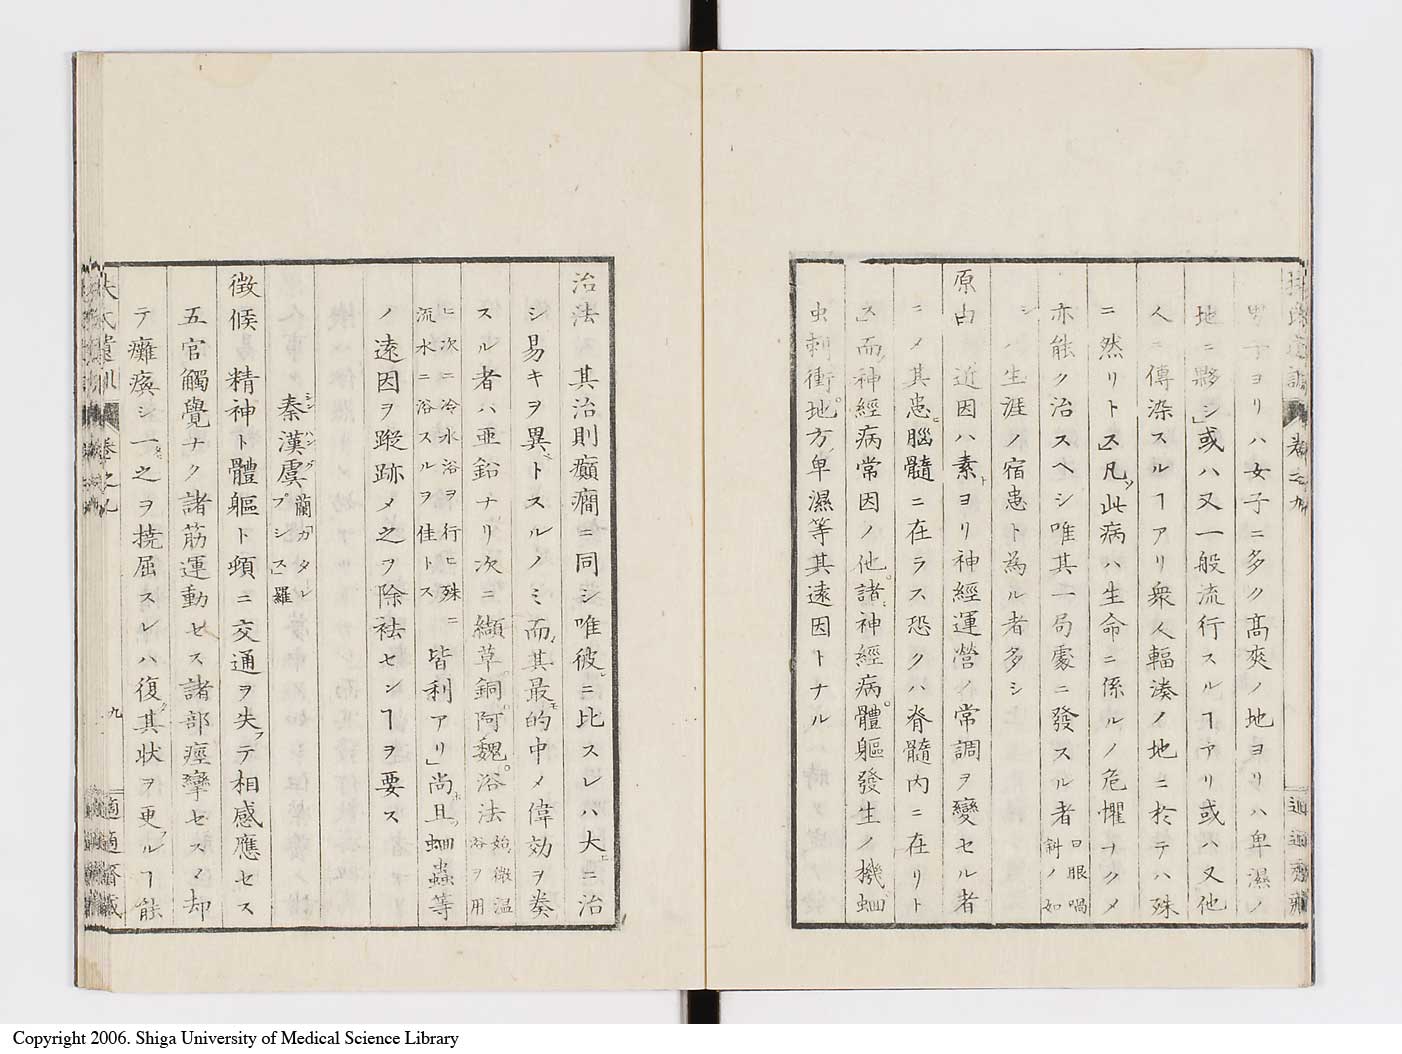 男子ヨリハ女子ニ多ク高爽ノ地ヨリハ卑濕ノ
地ニ夥シ」或ハ又一般流行スルヿアリ或ハ又他
人ニ傳染スルヿアリ衆人輻湊ノ地ニ於テハ殊
ニ然リトス」凡ソ此病ハ生命ニ係ルノ危懼ナクメ
亦能ク治スヘシ唯其一局處ニ發スル者口眼喎斜ノ如
シハ生涯ノ宿患ト為ル者多シ
原由 近因ハ素ヨリ神經運營ノ常調ヲ變セル者
ニメ其患ヒ腦髓ニ在ラス恐クハ脊髓内ニ在リト
ス」而メ神經病常因ノ他諸神經病體軀發生ノ機蛔
虫刺衝地方卑濕等其遠因トナル
治法 其治則癲癇ニ同シ唯彼レニ比スレハ大ニ治
シ易キヲ異トスルノミ而メ其最モ的中メ偉効ヲ奏
スル者ハ亜鉛ナリ次ニ纈草銅阿魏浴法始メ微温浴ヲ用
ヒ次ニ冷水浴ヲ行ヒ殊ニ流水ニ浴スルヲ佳トス皆利アリ」尚且ツ蛔蟲等
ノ遠因ヲ蹤跡メ之ヲ除袪センヿヲ要ス
秦漢虞シンハング蘭「カタレプシス」羅
徴候 精神ト體軀ト頓ニ交通ヲ失テ相感應セス
五官觸覺ナク諸筋運動セス諸部痙攣セスメ却
テ癱瘓シ一タヒ之ヲ撓屈スレハ復タ其状ヲ更ルヿ能
扶氏遺訓 卷之九 九 適適齋藏